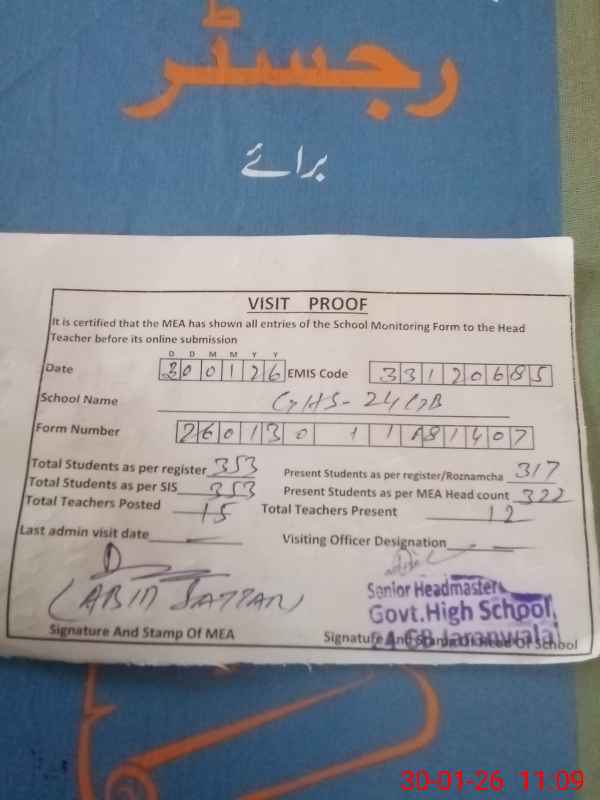 رجسٹر
برائے
VISIT PROOF
It is certified that the MEA has shown all entries of the School Monitoring Form to the Head
Teacher before its online submission
D D M M Y Y
Date 300126 EMIS Code 33120685
School Name GHS-24GB
Form Number 260130 1 1 A81407
Total Students as per register 353 Present Students as per register/Roznamcha 317
Total Students as per SIS 353 Present Students as per MEA Head count 322
Total Teachers Posted 15 Total Teachers Present 12
Last admin visit date Visiting Officer Designation
Senior Headmaster
Govt.High School,
24-GB Jaranwala
Signature And Stamp Of MEA Signature And Stamp Of Head Of School
30-01-26 11:09